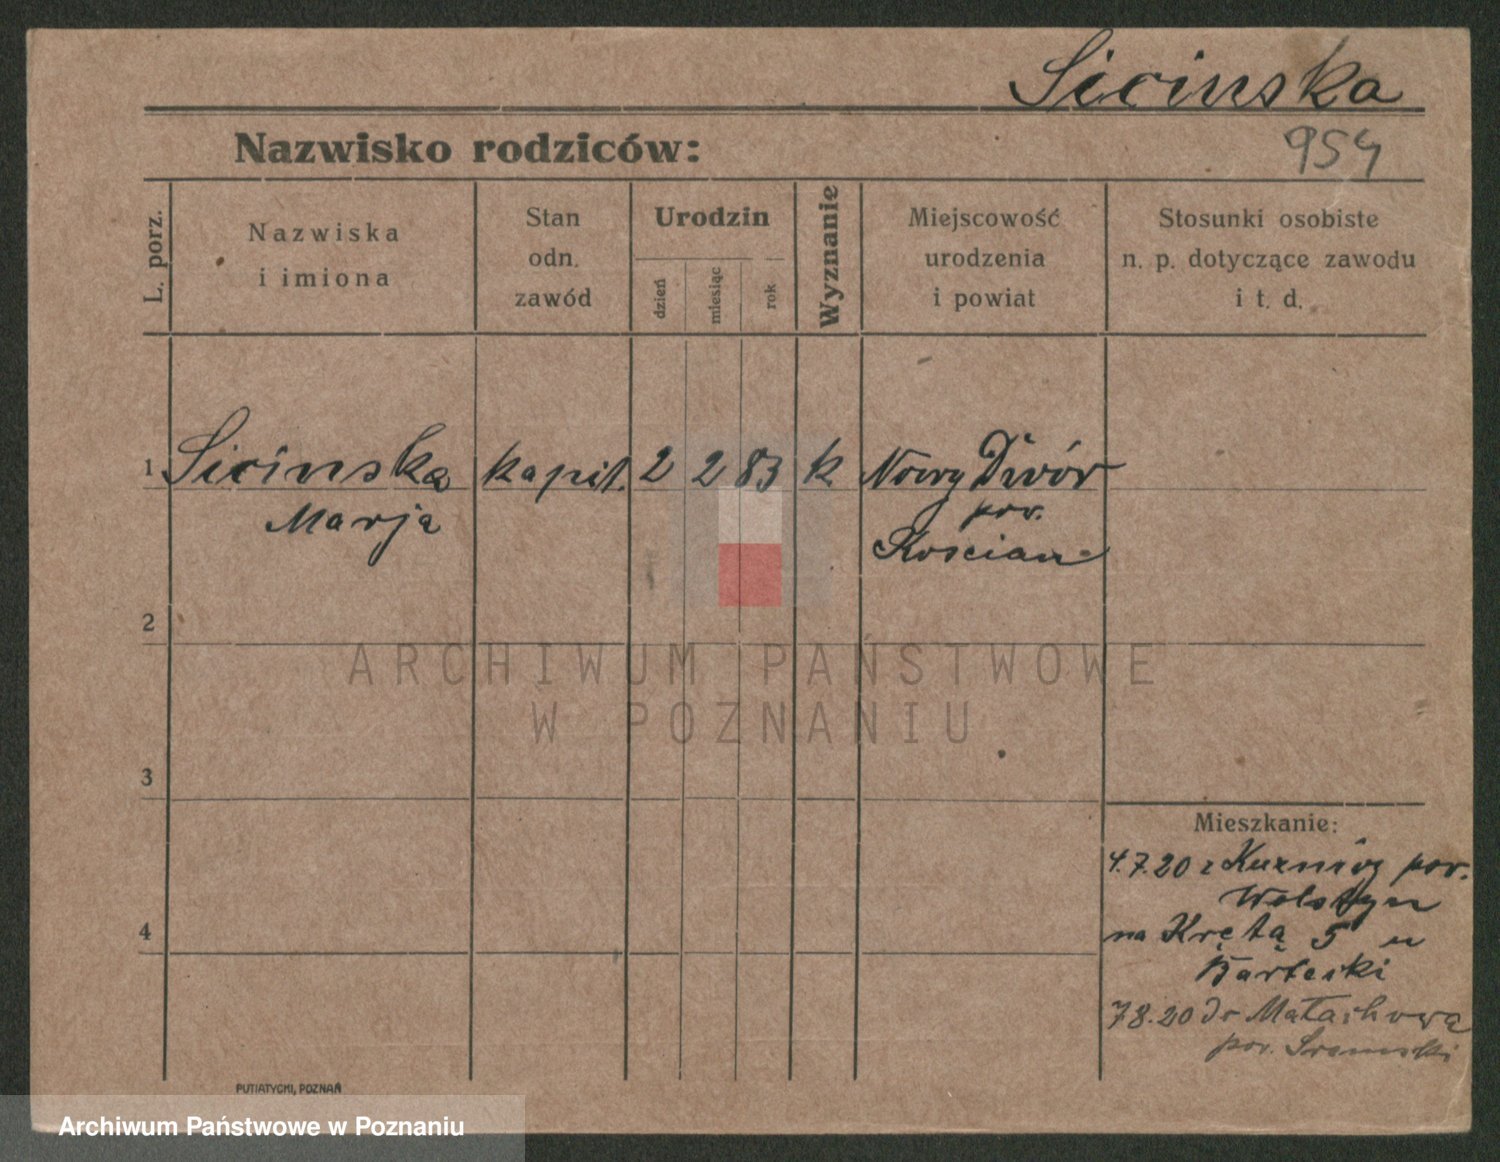 Sicinska
954
Nazwisko rodziców:
L. porz.
Nazwiska
i imiona
Stan
odn.
zawód
Urodzin
dzień
miesiąc
rok
Wyznanie
Miejscowość
urodzenia
i powiat
Stosunki osobiste
n. p. dotyczące zawodu
i t. d.
1 Sicinska kapit. 2 2 83 k Nowy Dwór
Marja pow.
Kościan
2
ARCHIWUM PAŃSTWOWE
W POZNANIU
3
Mieszkanie:
4.7.20 z pow.
Wolsztyn
na Krętą 5 u
4
7 8.20 do
pow.
PUTIATYCKI, POZNAŃ
Archiwum Państwowe w Poznaniu